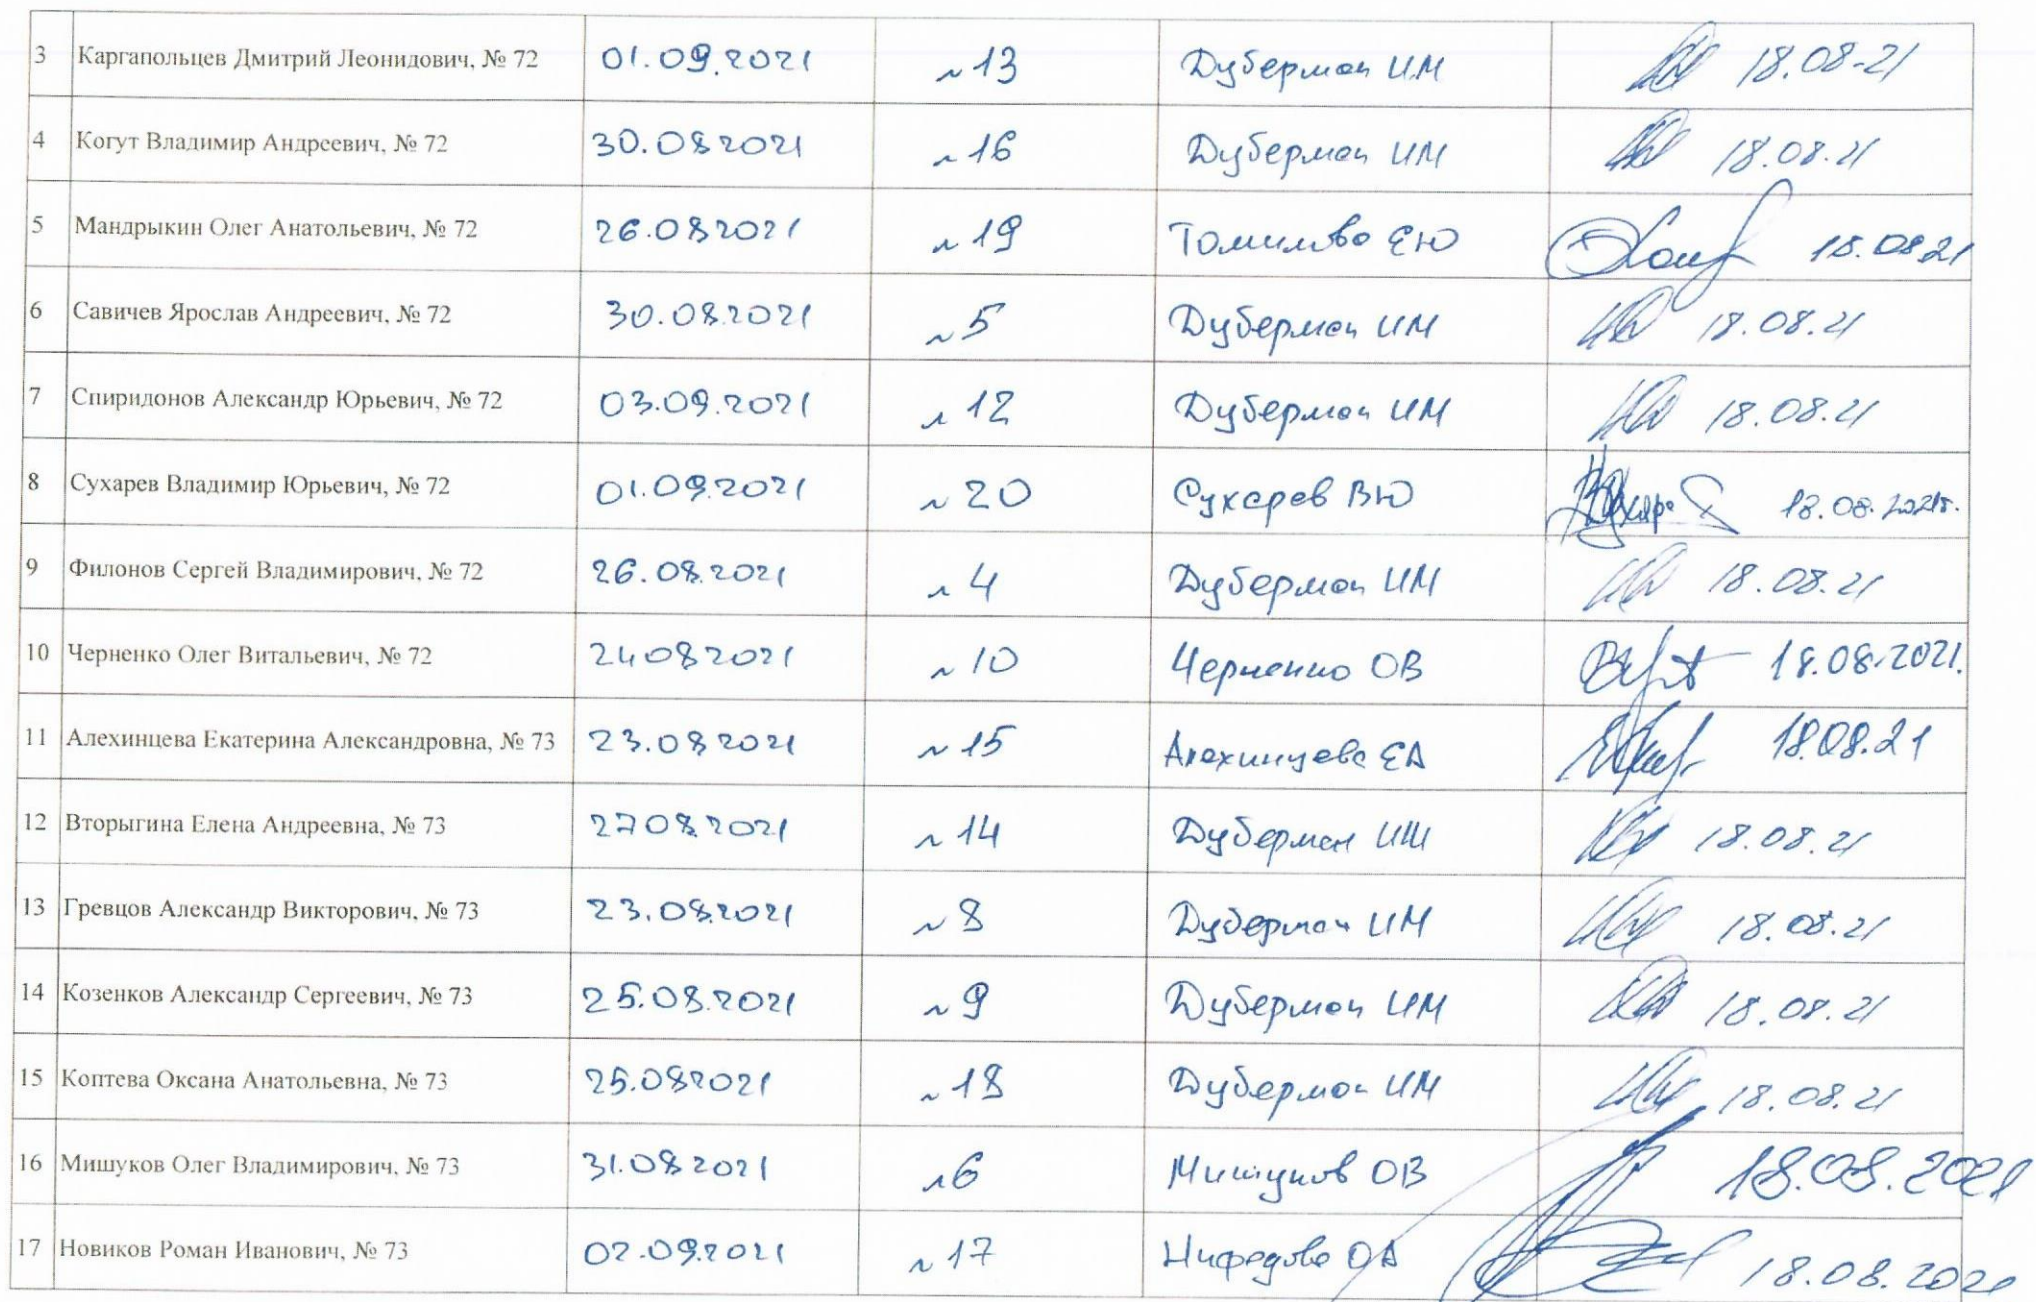 3 Каргапольцев Дмитрий Леонидович, № 72 01.09.2021 ~13 Дуберман ИМ 18.08-21
4 Когут Владимир Андреевич, № 72 30.08 2021 ~16 Дуберман ИМ 18.08.21
5 Мандрыкин Олег Анатольевич, № 72 26.08 2021 ~19 Томилова ЕЮ 18.08.21
6 Савичев Ярослав Андреевич, № 72 30.08.2021 ~5 Дуберман ИМ 18.08.21
7 Спиридонов Александр Юрьевич, № 72 03.09.2021 ~12 Дуберман ИМ 18.08.21
8 Сухарев Владимир Юрьевич, № 72 01.09.2021 ~20 Сухарев ВЮ 18.08.2021г.
9 Филонов Сергей Владимирович, № 72 26.08.2021 ~4 Дуберман ИМ 18.08.21
10 Черненко Олег Витальевич, № 72 24 08 2021 ~10 Черненко ОВ 18.08.2021.
11 Алехинцева Екатерина Александровна, № 73 23.08 2021 ~15 Алехинцева ЕА 18.08.21
12 Вторыгина Елена Андреевна, № 73 27 08.2021 ~14 Дуберман ИМ 18.08.21
13 Гревцов Александр Викторович, № 73 23.08.2021 ~8 Дуберман ИМ 18.08.21
14 Козенков Александр Сергеевич, № 73 25.08.2021 ~9 Дуберман ИМ 18.08.21
15 Коптева Оксана Анатольевна, № 73 25.08 2021 ~18 Дуберман ИМ 18.08.21
16 Мишуков Олег Владимирович, № 73 31.08 2021 ~6 Мишуков ОВ 18.08.2021
17 Новиков Роман Иванович, № 73 02.09.2021 ~17 ОА 18.08.2021